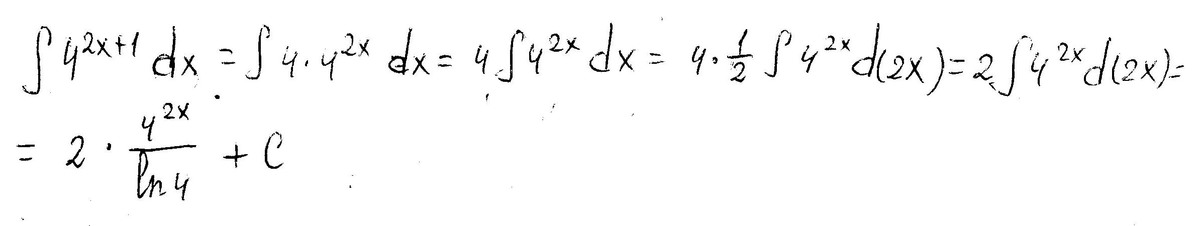 ∫ 4^{2x+1} dx = ∫ 4 · 4^{2x} dx = 4 ∫ 4^{2x} dx = 4 · \frac{1}{2} ∫ 4^{2x} d(2x) = 2 ∫ 4^{2x} d(2x) =
= 2 · \frac{4^{2x}}{ln 4} + C